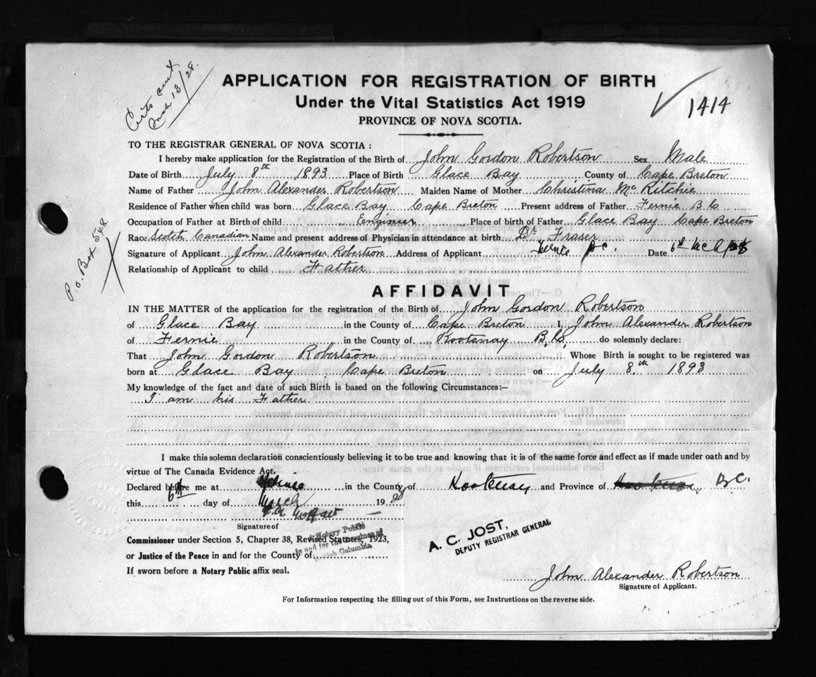 Certs sent
Mch 13/28.
APPLICATION FOR REGISTRATION OF BIRTH
Under the Vital Statistics Act 1919
PROVINCE OF NOVA SCOTIA.
1414
TO THE REGISTRAR GENERAL OF NOVA SCOTIA :
I hereby make application for the Registration of the Birth of John Gordon Robertson Sex Male
Date of Birth July 8th 1893 Place of Birth Glace Bay County of Cape Breton
Name of Father John Alexander Robertson Maiden Name of Mother Christina McRitchie
Residence of Father when child was born Glace Bay Cape Breton Present address of Father Fernie B.C
Occupation of Father at Birth of child Engineer Place of birth of Father Glace Bay Cape Breton
Race Scotch Canadian Name and present address of Physician in attendance at birth Dr Fraser
Signature of Applicant John Alexander Robertson Address of Applicant Fernie B.C. Date 6th
Relationship of Applicant to child Father
P.O. Box 548
AFFIDAVIT
IN THE MATTER of the application for the registration of the Birth of John Gordon Robertson
of Glace Bay in the County of Cape Breton I, John Alexander Robertson
of Fernie in the County of Kootenay B.C. do solemnly declare:
That John Gordon Robertson Whose Birth is sought to be registered was
born at Glace Bay Cape Breton on July 8th 1893
My knowledge of the fact and date of such Birth is based on the following Circumstances:—
I am his Father
I make this solemn declaration conscientiously believing it to be true and knowing that it is of the same force and effect as if made under oath and by
virtue of The Canada Evidence Act.
Declared before me at Fernie in the County of Kootenay and Province of B.C.
this 6th day of March 1928
Signature of
Commissioner under Section 5, Chapter 38, Revised Statutes, 1923,
or Justice of the Peace in and for the County of
If sworn before a Notary Public affix seal.
A Notary Public
in and for the Province of
British Columbia
A. C. JOST,
DEPUTY REGISTRAR GENERAL
John Alexander Robertson
Signature of Applicant.
For Information respecting the filling out of this Form, see Instructions on the reverse side.